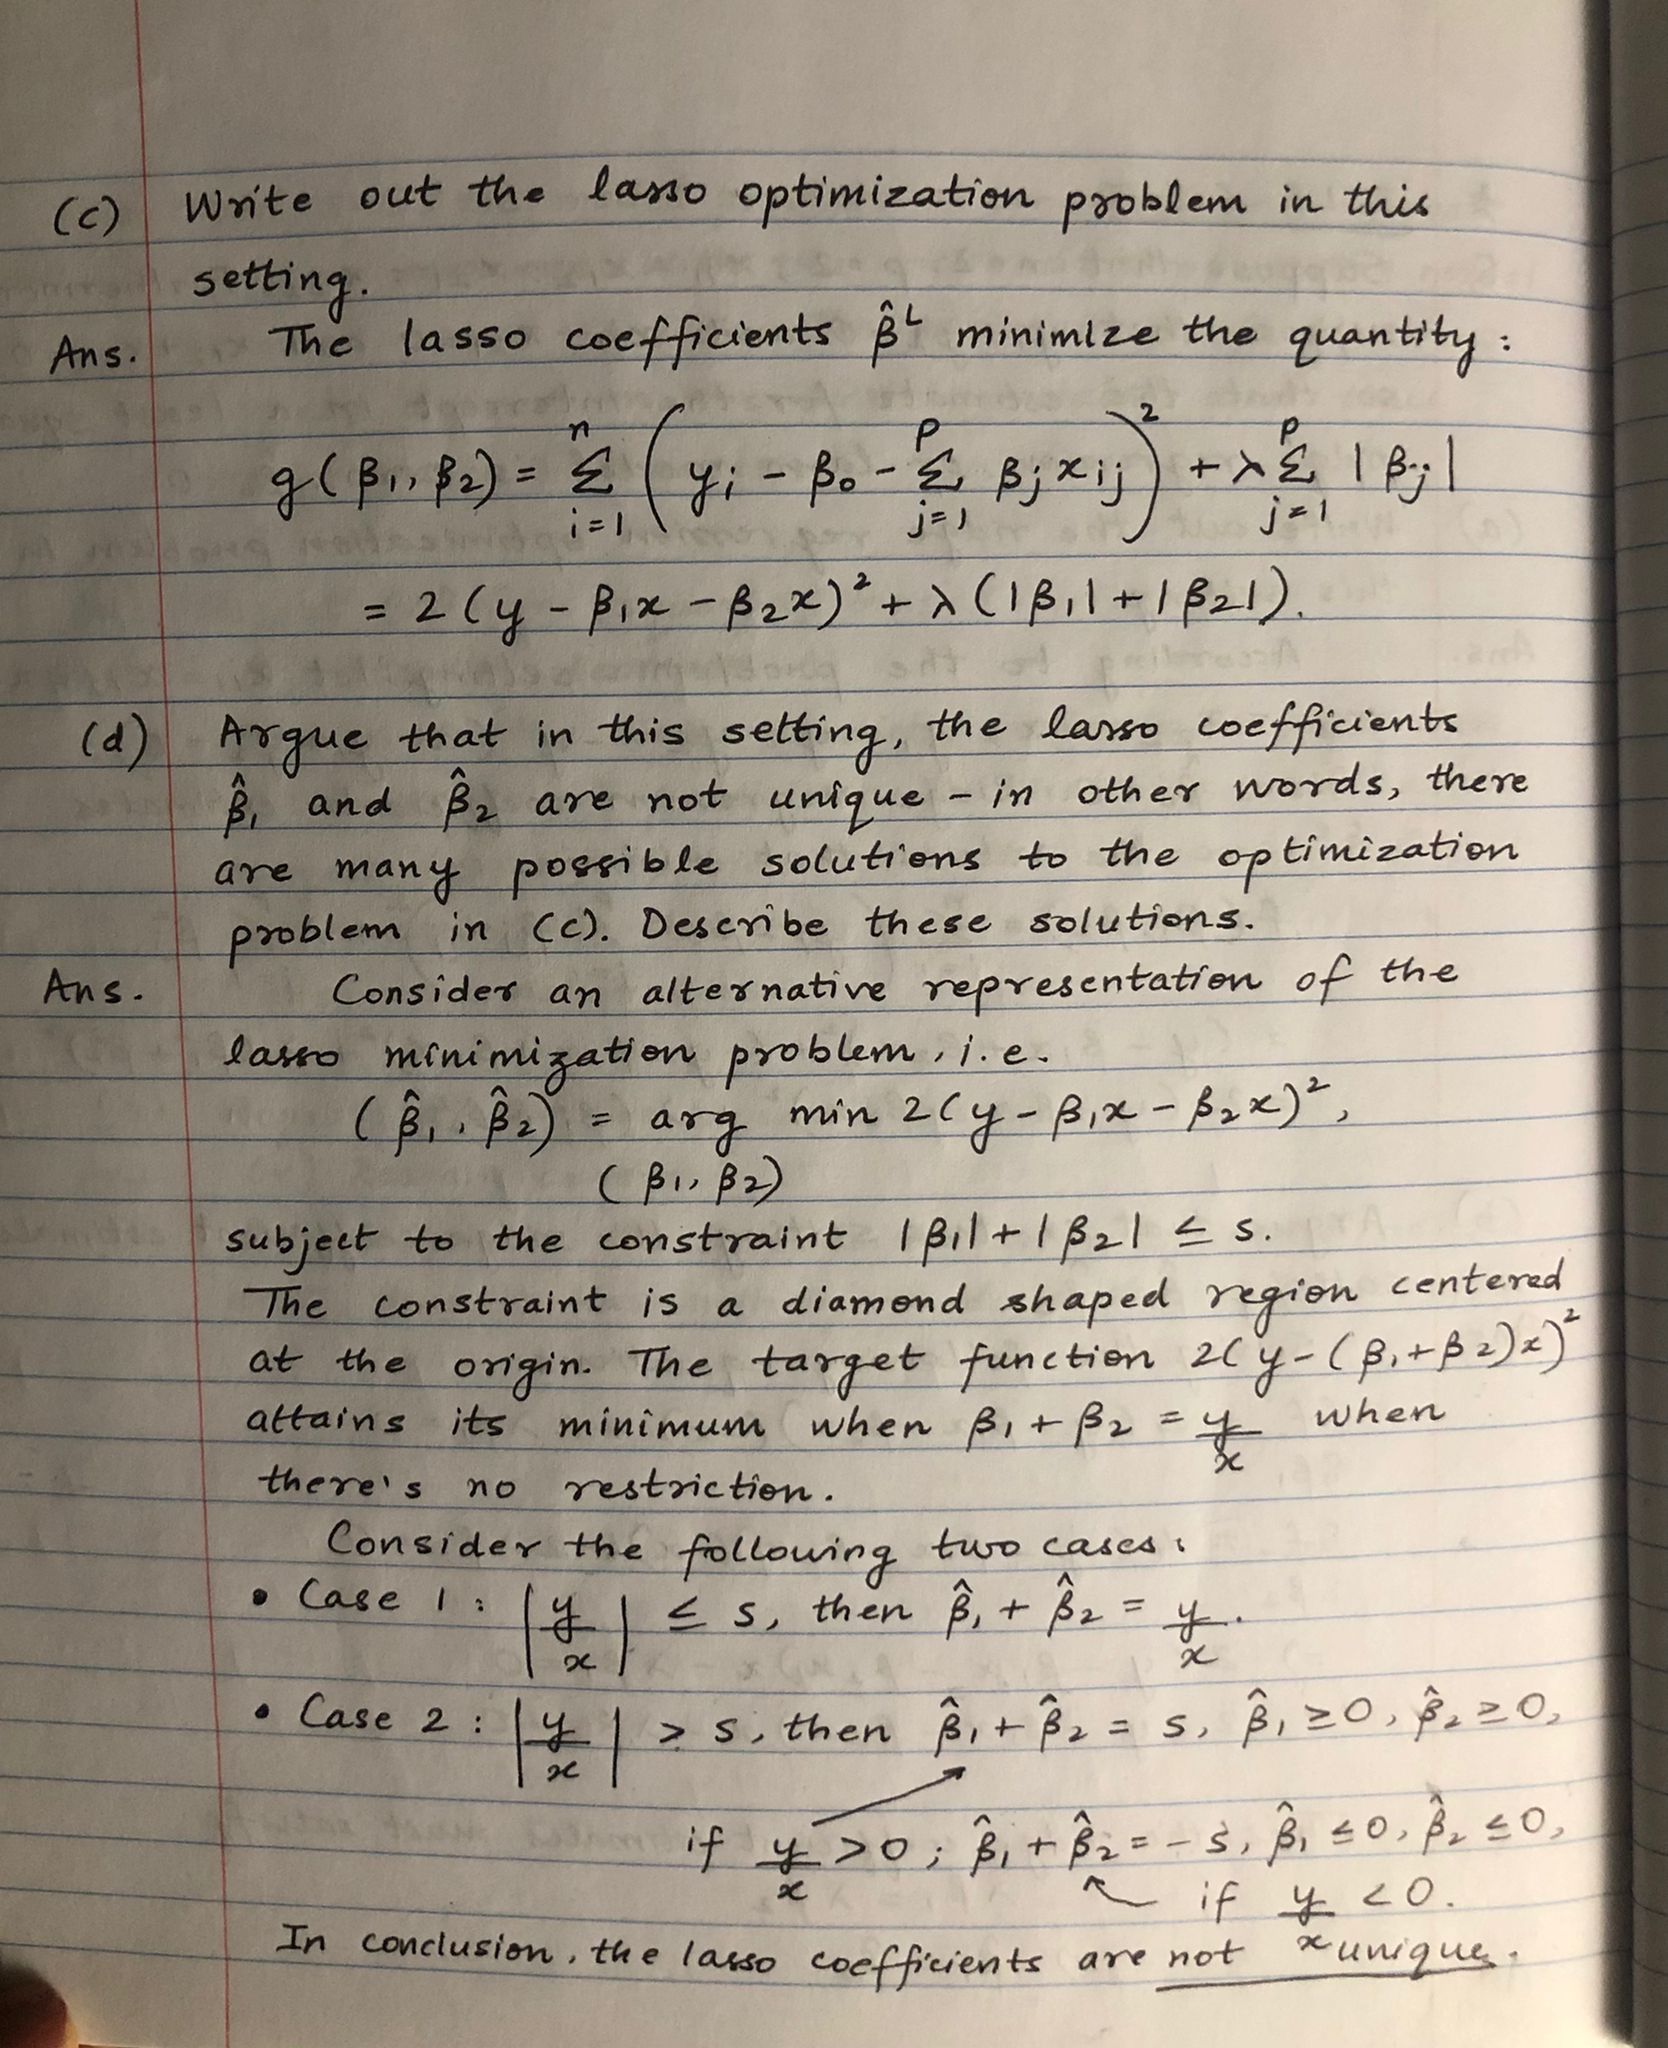 (c) Write out the lasso optimization problem in this
setting.
Ans. The lasso coefficients β̂ᴸ minimize the quantity:
g(β₁, β₂) = Σᵢ₌₁ⁿ (yᵢ - β₀ - Σⱼ₌₁ᵖ βⱼxᵢⱼ)² + λΣⱼ₌₁ᵖ |βⱼ|
= 2(y - β₁x - β₂x)² + λ(|β₁| + |β₂|).
(d) Argue that in this setting, the lasso coefficients
β̂₁ and β̂₂ are not unique - in other words, there
are many possible solutions to the optimization
problem in (c). Describe these solutions.
Ans. Consider an alternative representation of the
lasso minimization problem, i.e.
(β̂₁, β̂₂) = arg min 2(y - β₁x - β₂x)²,
(β₁, β₂)
subject to the constraint |β₁| + |β₂| ≤ s.
The constraint is a diamond shaped region centered
at the origin. The target function 2(y - (β₁ + β₂)x)²
attains its minimum when β₁ + β₂ = y/x when
there's no restriction.
Consider the following two cases:
• Case 1: |y/x| ≤ s, then β̂₁ + β̂₂ = y/x.
• Case 2: |y/x| > s, then β̂₁ + β̂₂ = s, β̂₁ ≥ 0, β̂₂ ≥ 0,
if y/x > 0; β̂₁ + β̂₂ = -s, β̂₁ ≤ 0, β̂₂ ≤ 0,
if y/x < 0.
In conclusion, the lasso coefficients are not unique.